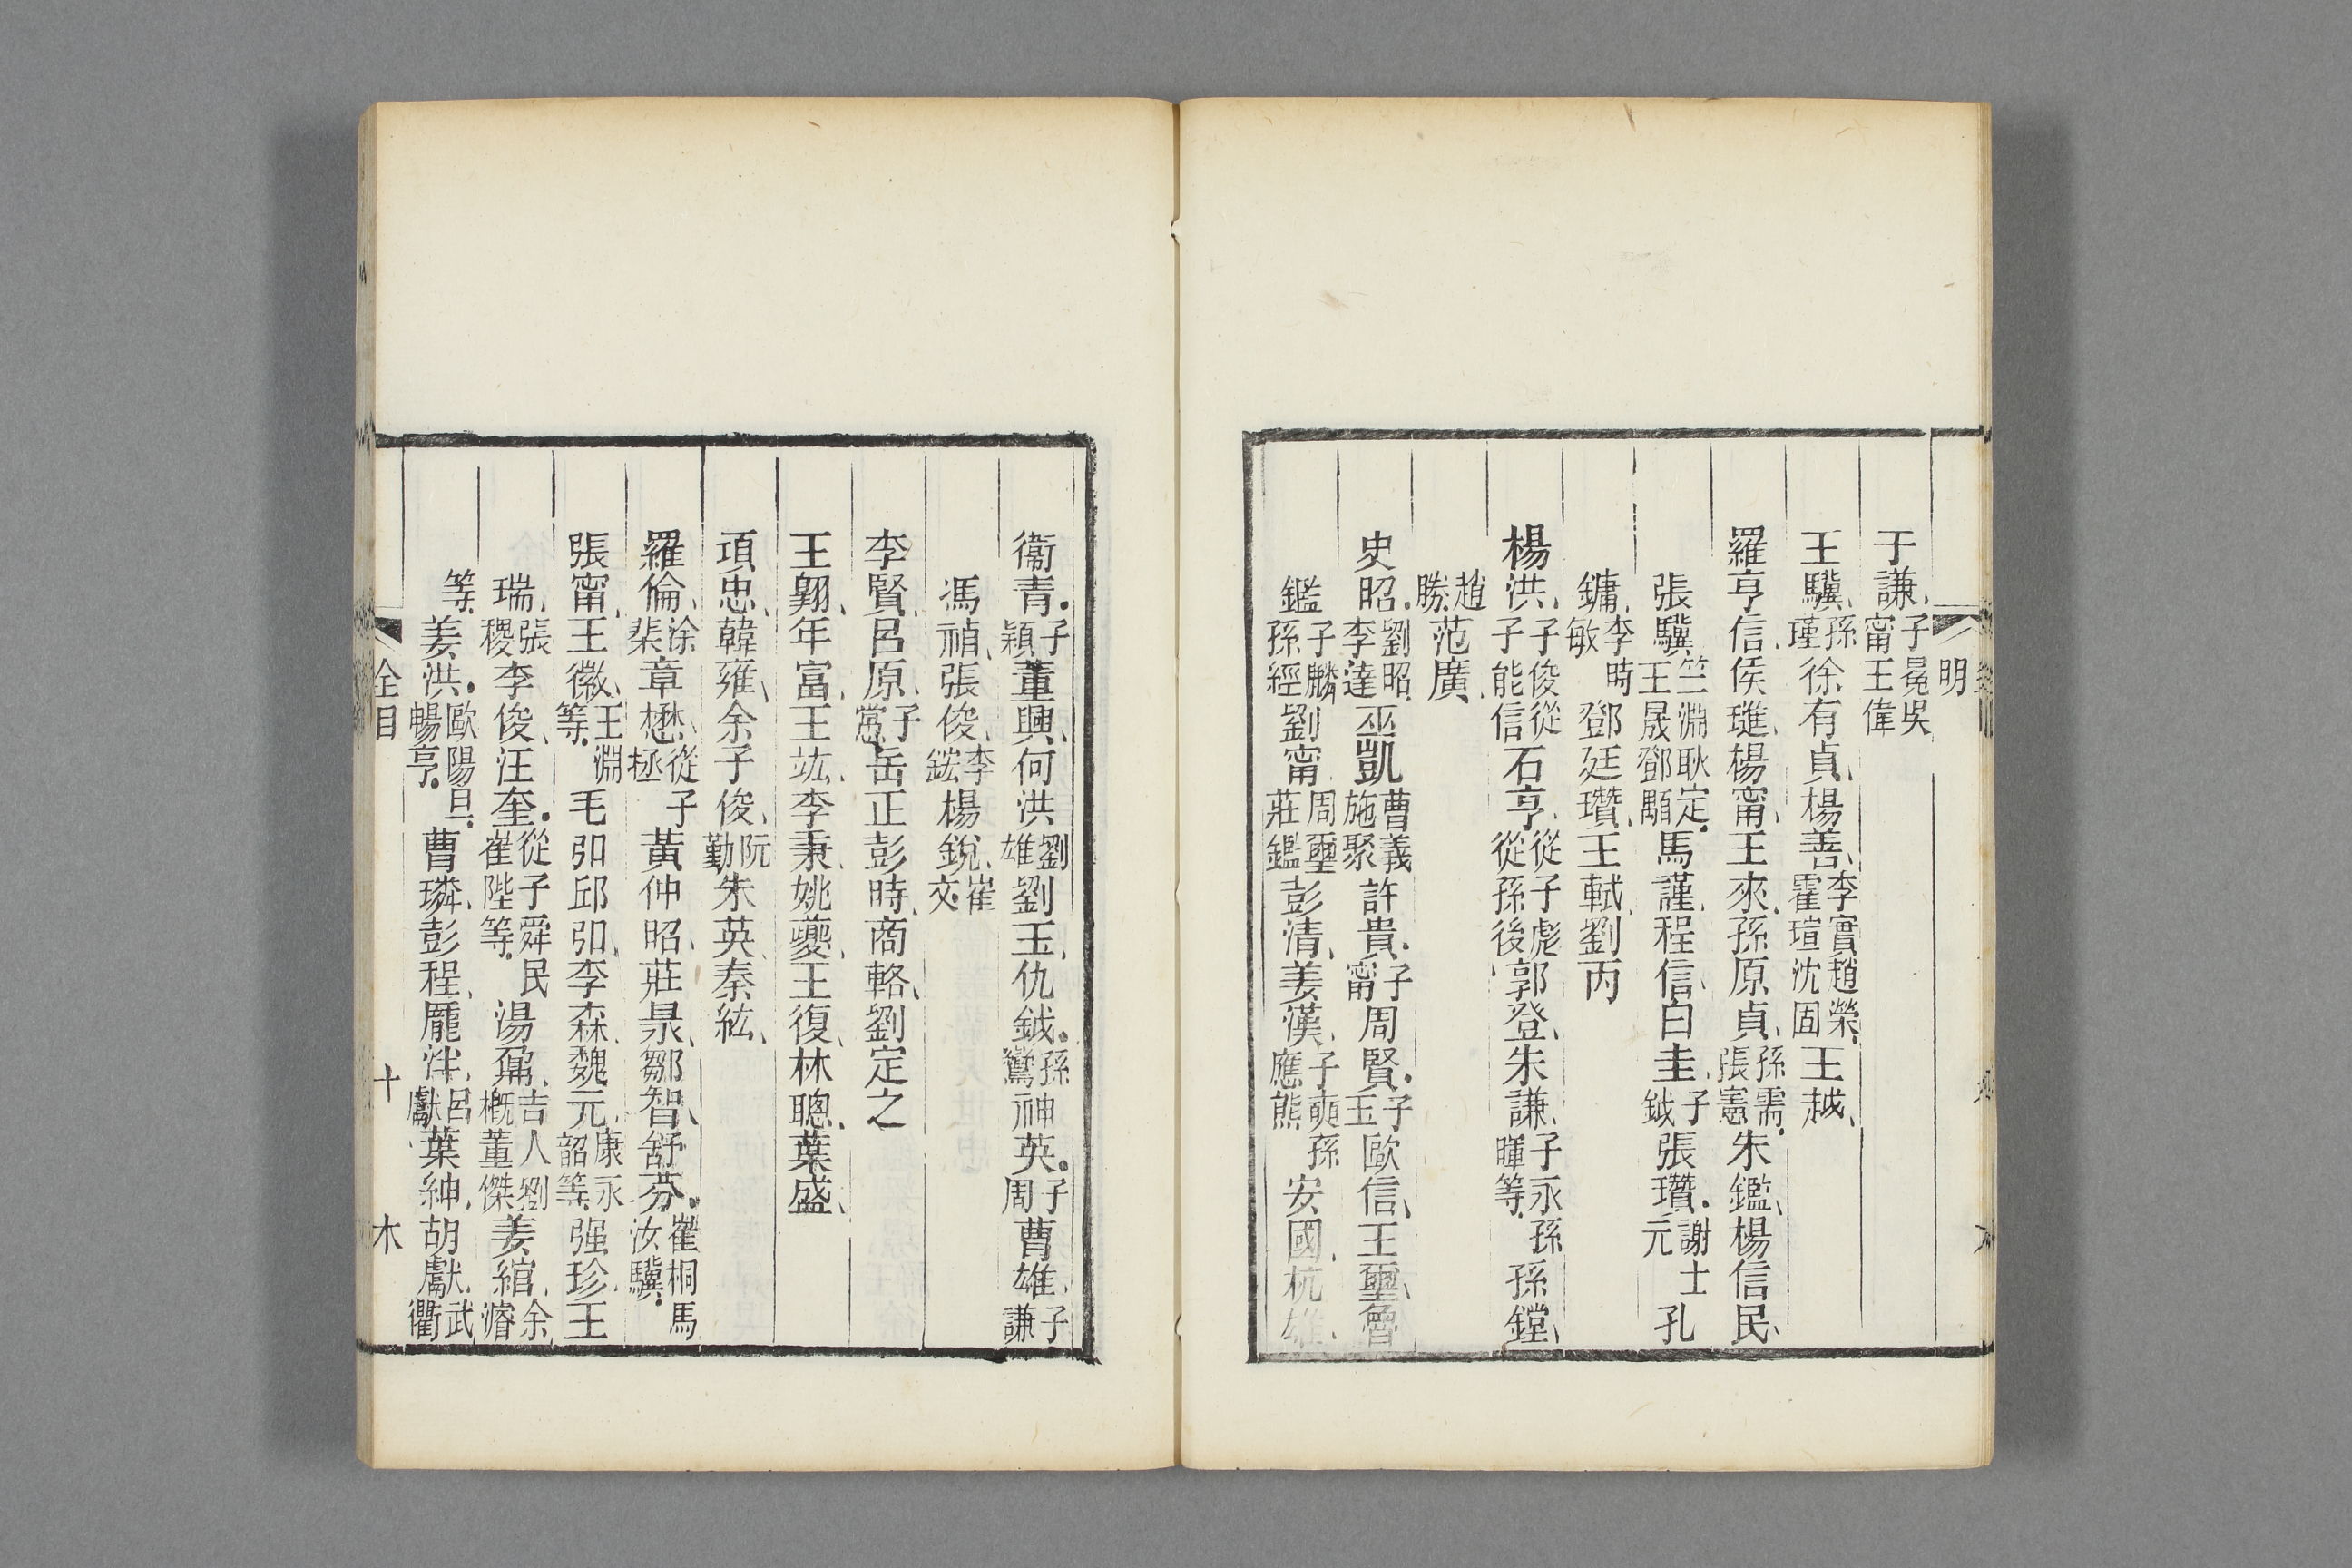 明
于謙、子冕吳甯王偉
王驥、孫瑾徐有貞、楊善、李實趙榮、霍瑄沈固王越、
羅亨信、侯璡、楊甯、王來、孫原貞、孫需、張憲朱鑑、楊信民、
張驥竺淵耿定、王晟鄧顒馬謹、程信、白圭、子鉞張瓚、謝士元孔
鏞、李時敏鄧廷瓚、王軾、劉丙
楊洪、子俊從子能信石亨、從子彪從孫後郭登、朱謙、子永孫暉等、孫鏜、
趙勝范廣、
史昭、劉昭李達巫凱曹義施聚許貴、子甯周賢、子玉歐信、王璽、魯
鑑子麟孫經劉甯周璽莊鑑彭清、姜漢、子奭孫應熊安國、杭雄、
衞青、子穎董興、何洪劉雄劉玉、仇鉞、孫鸞神英、子周曹雄、子謙
馮禎、張俊、李鋐楊銳、崔文
李賢、呂原、子㦂岳正彭時、商輅、劉定之
王翱、年富、王竑、李秉、姚夔、王復、林聰、葉盛、
項忠、韓雍、余子俊、阮勤朱英、秦紘、
羅倫、涂棐章懋、從子拯黃仲昭、莊㫤、鄒智、舒芬、崔桐馬汝驥、
張甯、王徽、王淵等、毛弘邱弘、李森、魏元、康永韶等强珍、王
瑞、張稷李俊、汪奎、從子舜民崔陞等、湯鼐、吉人劉槪董傑姜綰、余濬
等、姜洪、歐陽旦、暢亨、曹璘、彭程、龐泮、呂獻葉紳、胡獻、武衢
全目
十
木